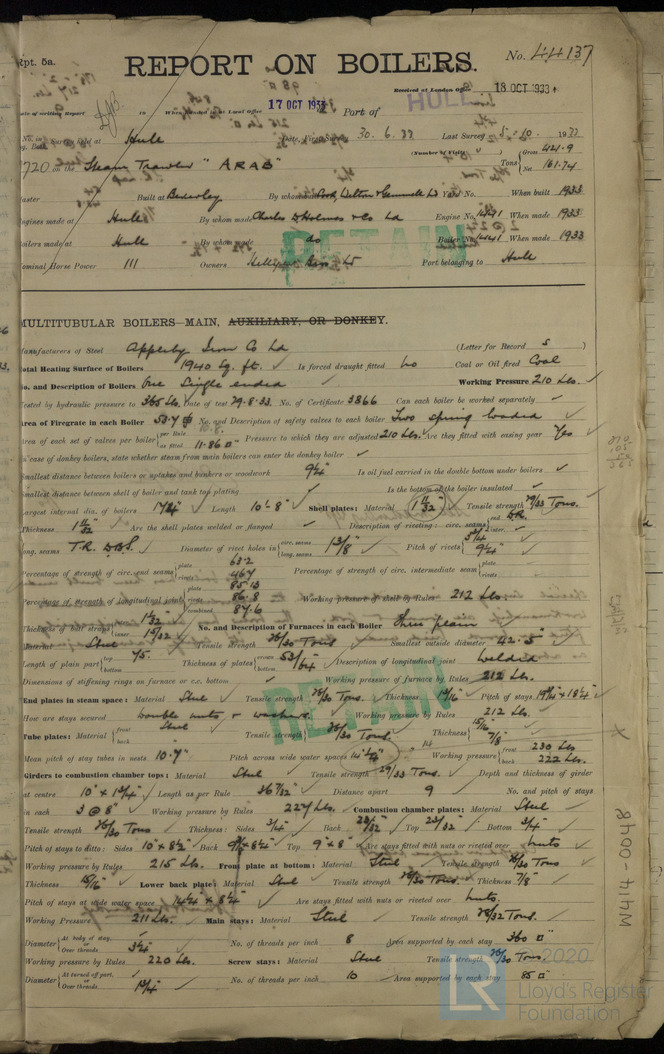 Rpt. 5a.
REPORT ON BOILERS.
No. 44137
Received at London Office 18 OCT 1933
17 OCT 1933 Port of HULL
Hull Date, First Survey 30.6.33 Last Survey 5.10.1933
on the Steam Trawler "ARAB" (Number of Visits ) Tons Gross 421.9 Net 161.74
Built at Beverley By whom Cook, Welton & Gemmell Ld Yard No. When built 1933
Engines made at Hull By whom made Charles D Holmes & Co Ld Engine No. 1441 When made 1933
Boilers made at Hull By whom made do Boiler No. 1441 When made 1933
Nominal Horse Power 111 Owners Hellyer Bros Ld Port belonging to Hull
RETAIN
MULTITUBULAR BOILERS—MAIN, AUXILIARY, OR DONKEY.
Manufacturers of Steel Appleby Iron Co Ld (Letter for Record S )
Total Heating Surface of Boilers 1940 Sq. ft. Is forced draught fitted No Coal or Oil fired Coal
No. and Description of Boilers One Single ended Working Pressure 210 Lbs.
Tested by hydraulic pressure to 365 Lbs. Date of test 29.8.33. No. of Certificate 3866 Can each boiler be worked separately
Area of Firegrate in each Boiler 53.4 No. and Description of safety valves to each boiler Two spring loaded
Area of each set of valves per boiler per Rule as fitted 11.86 Pressure to which they are adjusted 210 Lbs. Are they fitted with easing gear Yes
In case of donkey boilers, state whether steam from main boilers can enter the donkey boiler
Smallest distance between boilers or uptakes and bunkers or woodwork 9¼" Is oil fuel carried in the double bottom under boilers
Smallest distance between shell of boiler and tank top plating Is the bottom of the boiler insulated
Largest internal dia. of boilers Length 10'-8" Shell plates: Material 1 11/32" Tensile strength 29/33 Tons.
Thickness 1 11/32" Are the shell plates welded or flanged Description of riveting: circ. seams end D.R. inter.
long. seams T.R. D.B.S. Diameter of rivet holes in circ. seams long. seams 1 3/8" Pitch of rivets 9¼"
Percentage of strength of circ. end seams plate 63.2 rivets 46.4 Percentage of strength of circ. intermediate seam plate rivets
Percentage of strength of longitudinal joint plate 85.13 rivets 86.8 combined 87.6 Working pressure of shell by Rules 212 Lbs.
Thickness of butt straps outer 1 1/32" inner 1 9/32 No. and Description of Furnaces in each Boiler Three plain
Material Steel Tensile strength 26/30 Tons Smallest outside diameter 42.5
Length of plain part top 75 bottom Thickness of plates crown bottom 53/64 Description of longitudinal joint welded
Dimensions of stiffening rings on furnace or c.c. bottom Working pressure of furnace by Rules 212 Lbs.
RETAIN
End plates in steam space: Material Steel Tensile strength 26/30 Tons. Thickness 1 1/16" Pitch of stays
How are stays secured Double nuts & washers. Working pressure by Rules 212 Lbs.
Tube plates: Material front back Steel Tensile strength 26/30 Tons. Thickness 15/16" 7/8"
Mean pitch of stay tubes in nests 10.7" Pitch across wide water spaces 14¼" Working pressure front 230 Lbs back 222 Lbs.
Girders to combustion chamber tops: Material Steel Tensile strength 29/33 Tons. Depth and thickness of girder
at centre 10" x 1¾" Length as per Rule Distance apart 9 No. and pitch of stays
in each 3 @ 8" Working pressure by Rules 227 Lbs. Combustion chamber plates: Material Steel
Tensile strength 26/30 Tons Thickness: Sides 3/4" Back 23/32" Top 23/32" Bottom 3/4"
Pitch of stays to ditto: Sides 10" x 8½" Back Top 9" x 8" Are stays fitted with nuts or riveted over nuts
Working pressure by Rules 215 Lbs. Front plate at bottom: Material Steel Tensile strength 26/30 Tons
Thickness 15/16" Lower back plate: Material Steel Tensile strength 26/30 Tons. Thickness 7/8"
Pitch of stays at wide water space 14¼ x 8½" Are stays fitted with nuts or riveted over nuts.
Working Pressure 211 Lbs. Main stays: Material Steel Tensile strength 28/32 Tons.
Diameter At body of stay, or Over threads 3¼" No. of threads per inch 8 Area supported by each stay 360
Working pressure by Rules 220 Lbs. Screw stays: Material Steel Tensile strength 26/30 Tons.
Diameter At turned off part, or Over threads 1¾" No. of threads per inch 10 Area supported by each stay 85
W414-0048
LR
2020
Lloyd's Register
Foundation